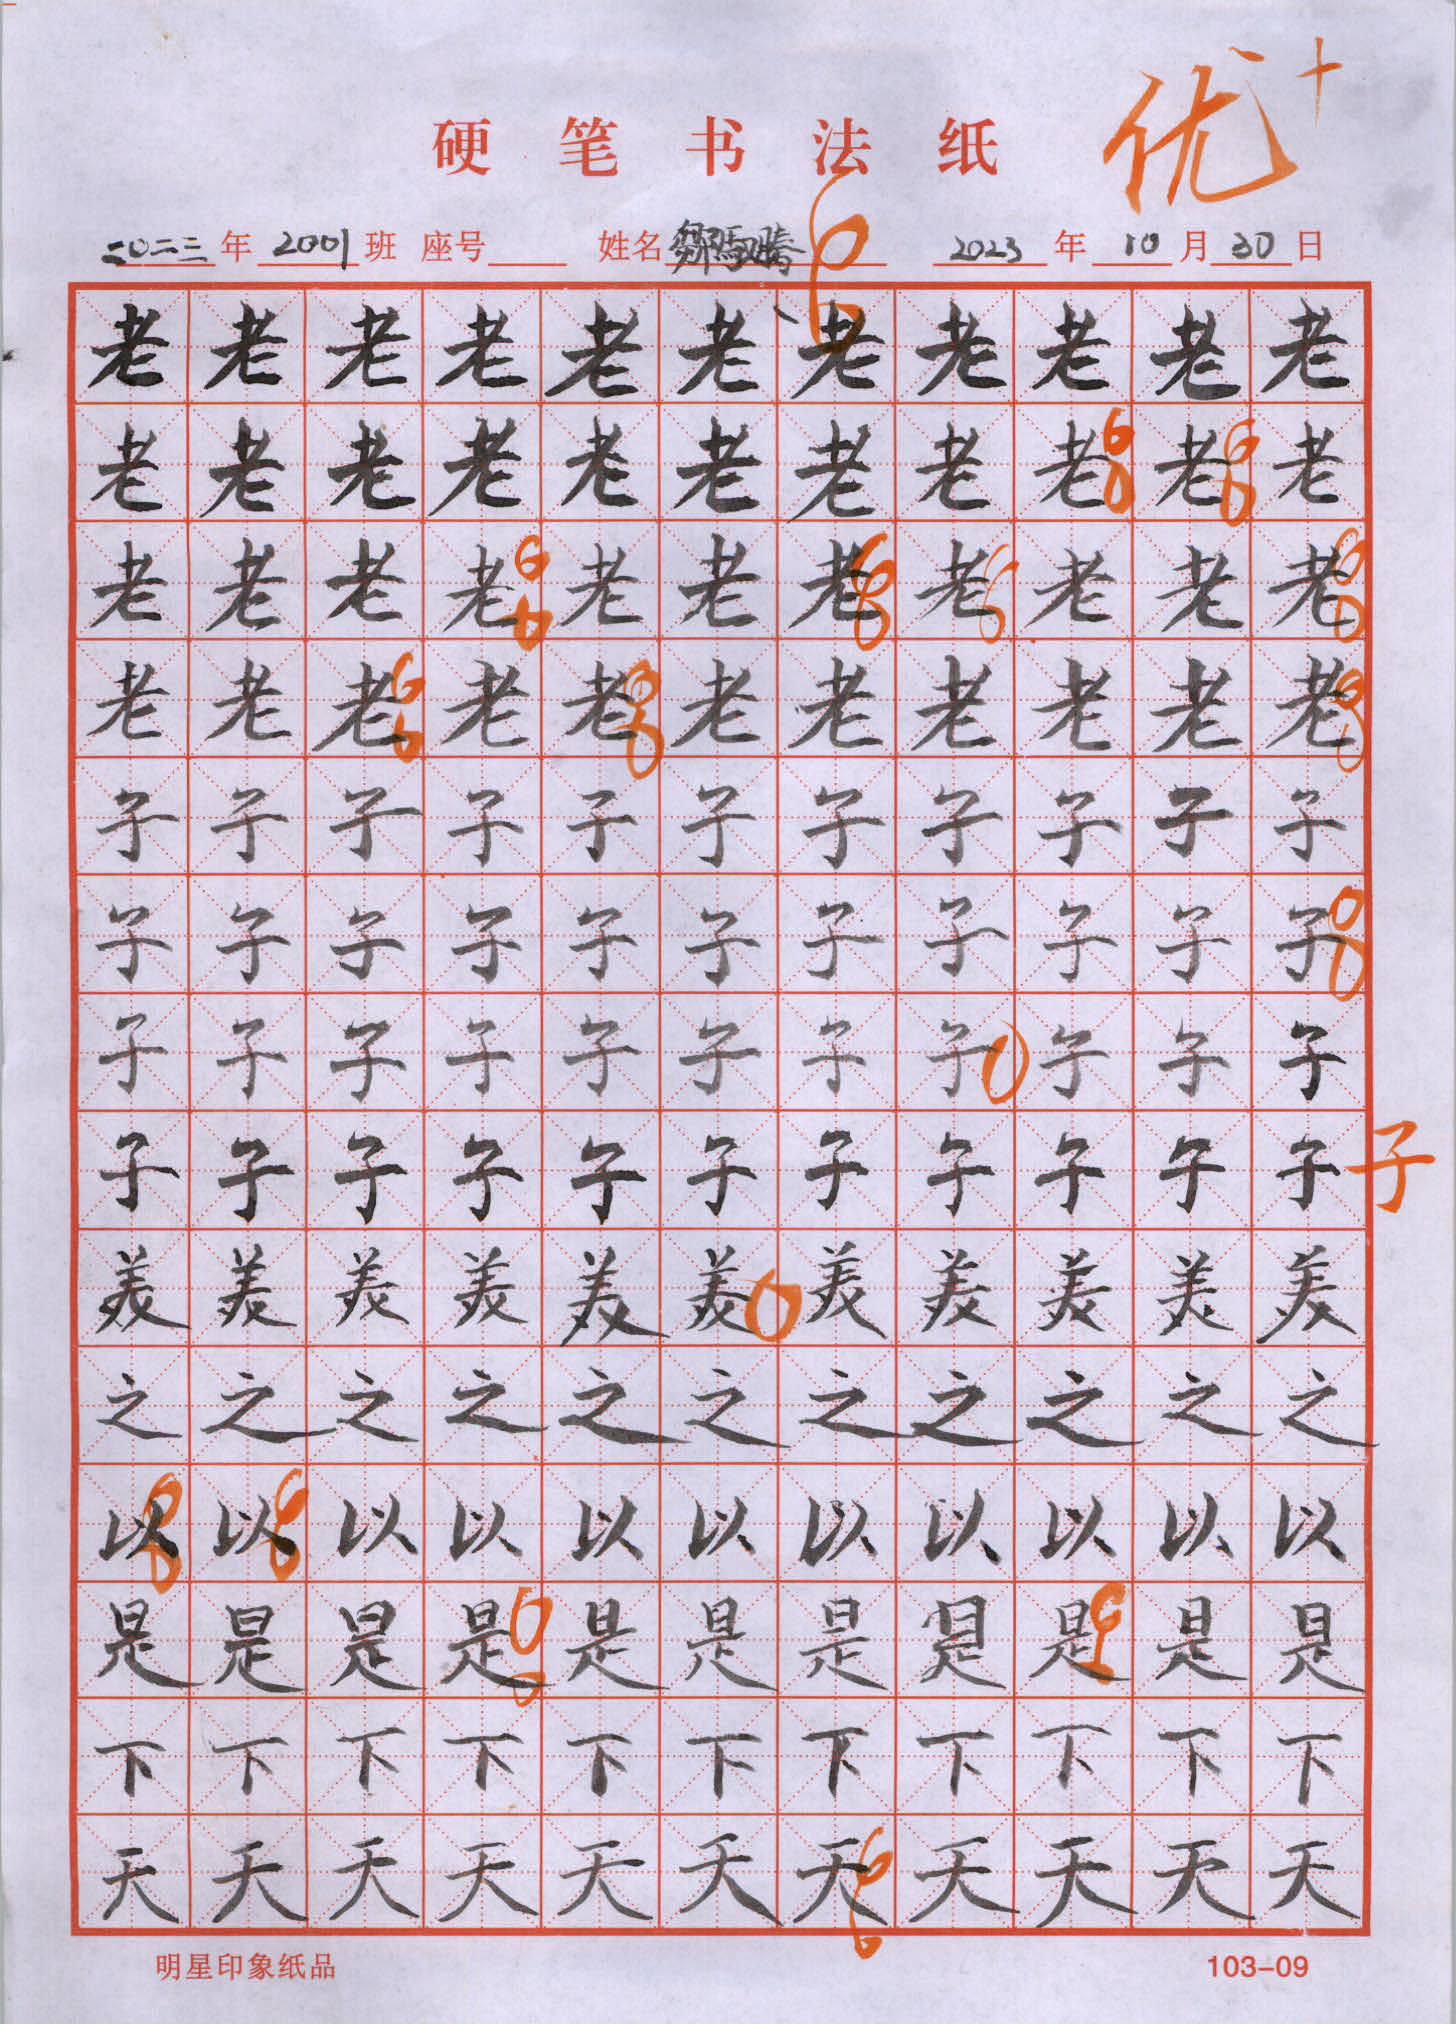 优+
硬笔书法纸
二〇二三年 2001班 座号 姓名 鄒馬騰 2023年 10月 30日
老老老老老老老老老老老
老老老老老老老老老老老
老老老老老老老老老老老
老老老老老老老老老老老
子子子子子子子子子子子
子子子子子子子子子子子
子子子子子子子子子子子
子子子子子子子子子子子 子
美美美美美美美美美美美
之之之之之之之之之之之
以以以以以以以以以以以
是是是是是是是是是是是
下下下下下下下下下下下
天天天天天天天天天天天
明星印象纸品 103-09